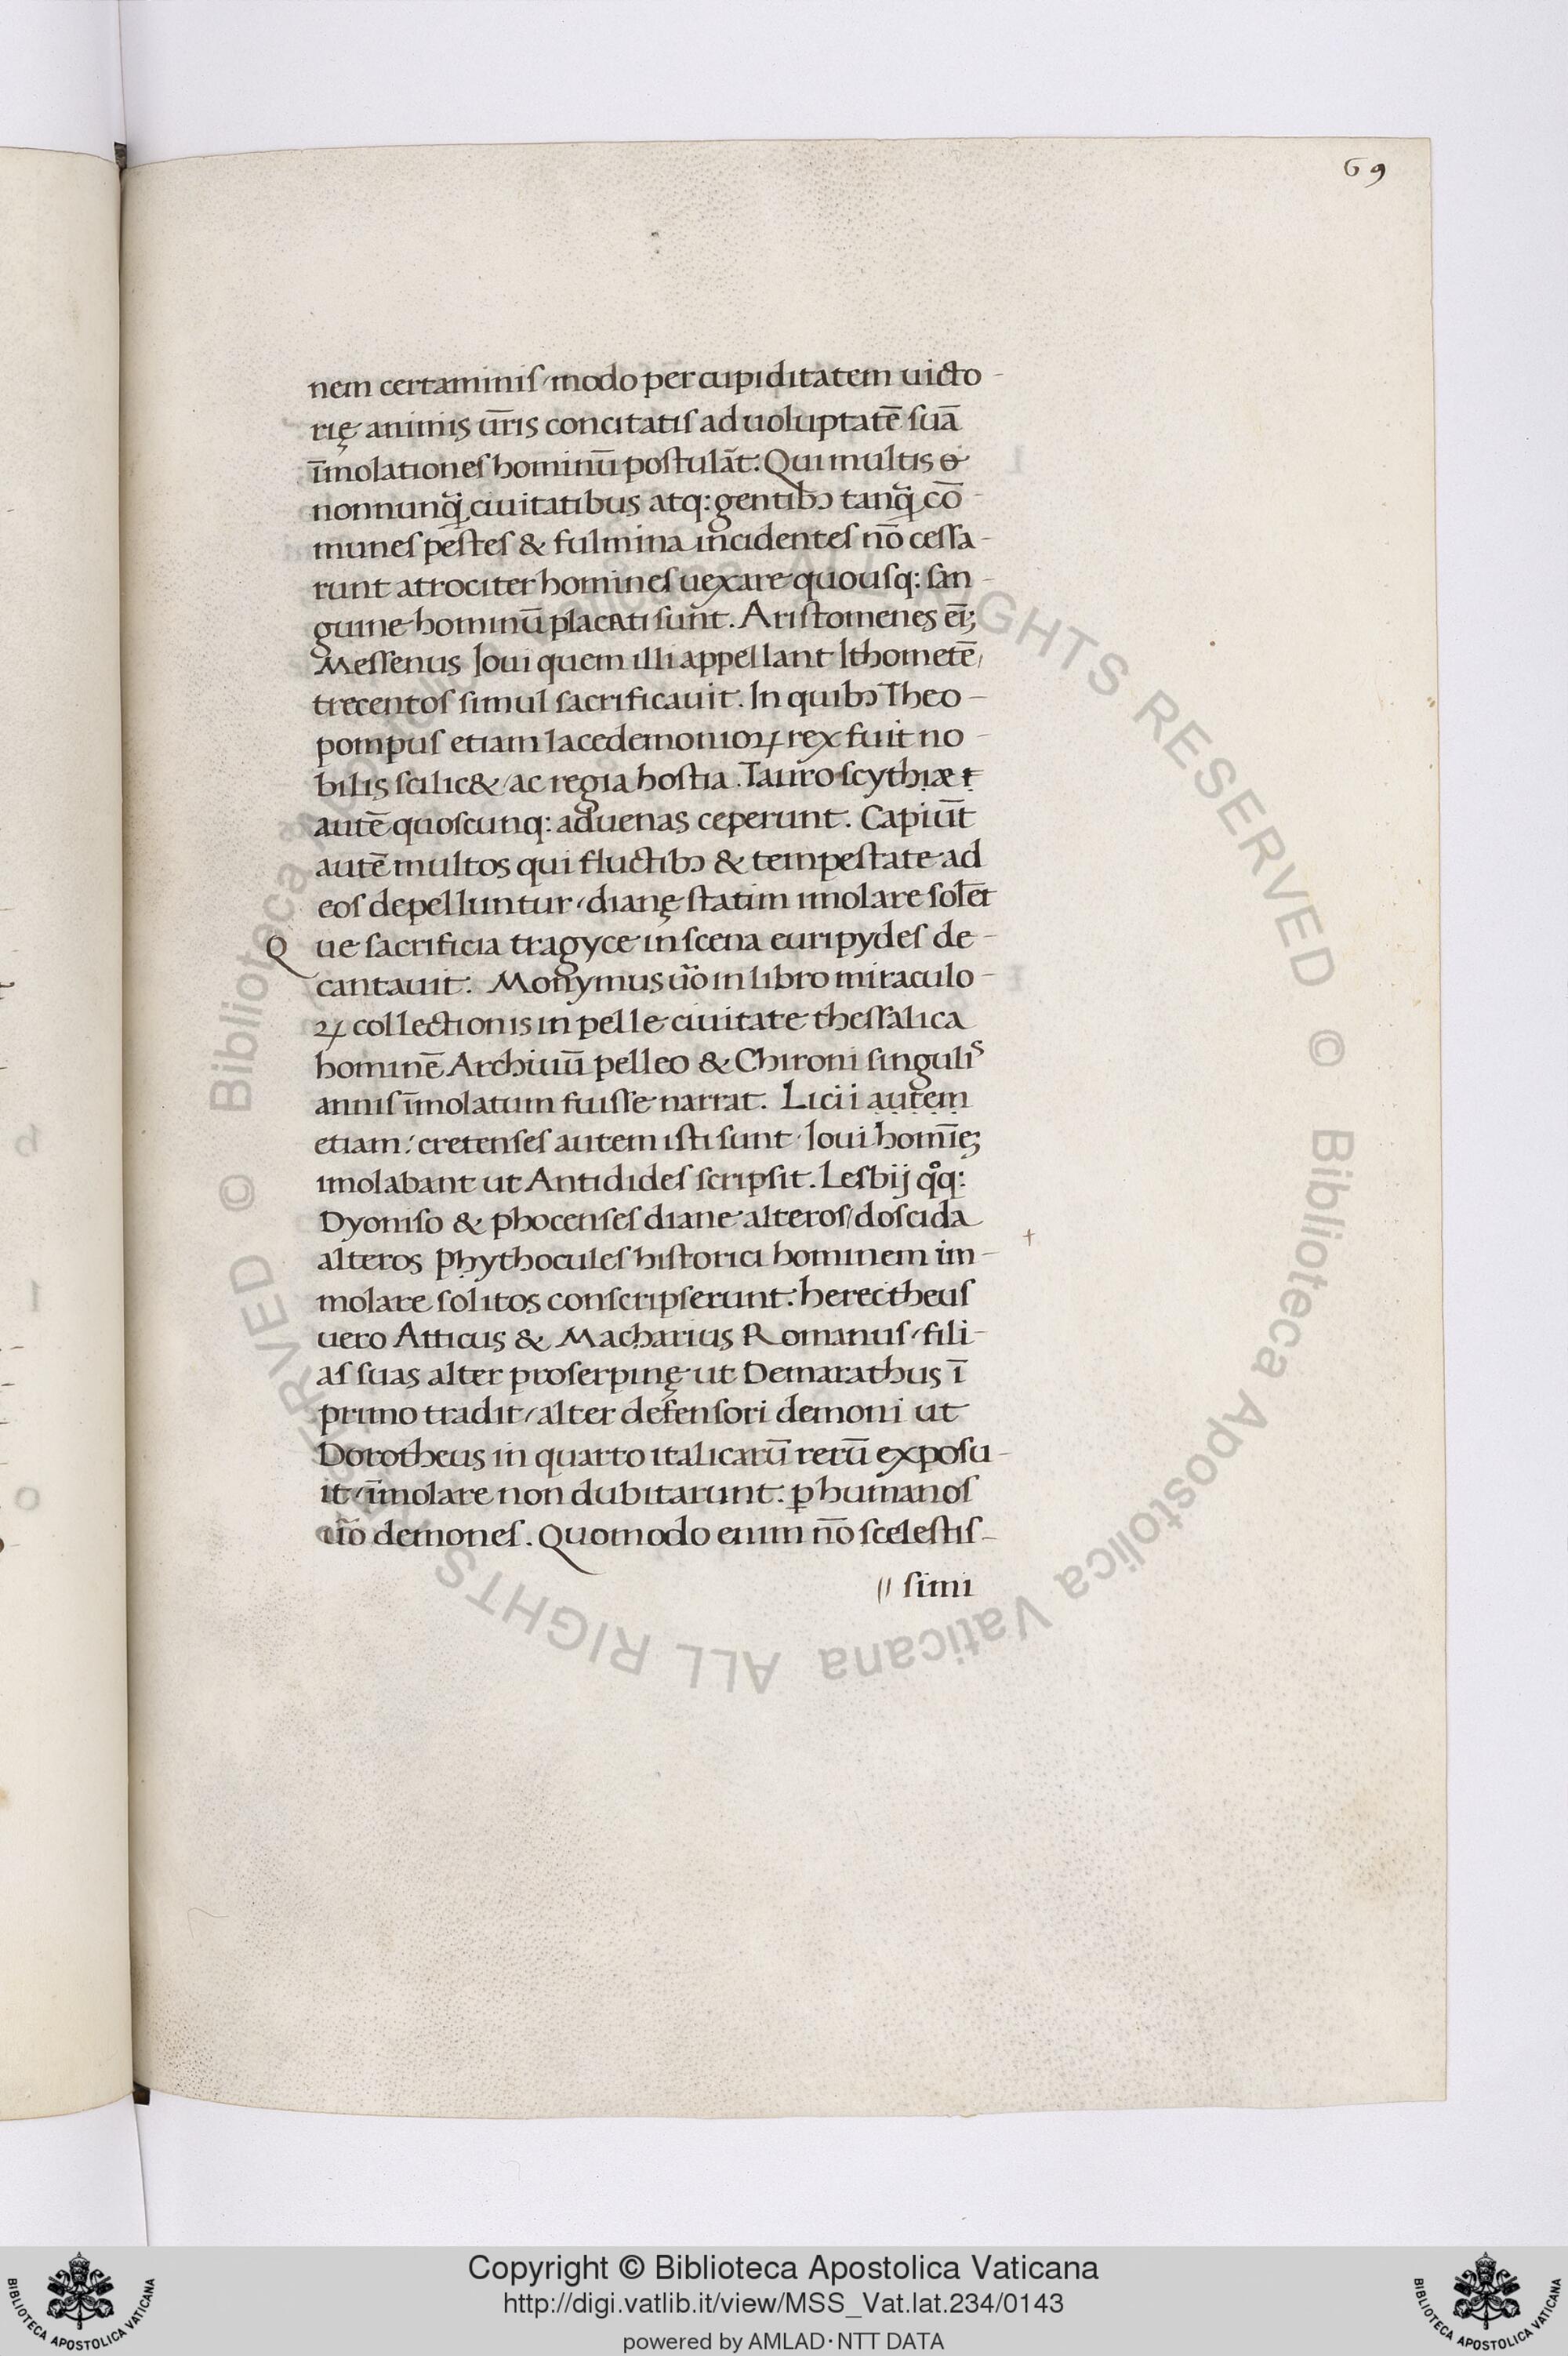 69
nem certaminis/modo per cupiditatem uicto-
rię animis ūr̄is concitatis ad uoluptatē suā
īmolationes hominū postulāt: Qui multis &
nonnunq̄ ciuitatibus atq: gentibꝯ tanq̄ cō-
munes pestes & fulmina incidentes nō cessa-
runt atrociter homines uexare quousq: san-
guine hominū placati sunt. Aristomenes eī;
Messenus Ioui quem illi appellant Ithometē/
trecentos simul sacrificauit. In quibꝯ Theo-
pompus etiam lacedemonioꝝ rex fuit no-
bilis scilic&/ac regia hostia. Tauro scythiæ t
autē quoscunq: aduenas ceperunt. Capiūt
autē multos qui fluctibꝯ & tempestate ad
eos depelluntur/dianę statim imolare solēt
Que sacrificia tragyce in scena euripydes de-
cantauit. Monymus ūo in libro miraculo-
ꝝ collectionis in pelle ciuitate thessalica
hominē Archiuū pelleo & Chironi singulis
annis īmolatum fuisse narrat. Licii autem
etiam: cretenses autem isti sunt/Ioui homīe;
imolabant ut Antidides scripsit. Lesbij qͦq:
Dyoniso & phocenses diane alteros/doscida
alteros Phythocules historici hominem im-
molare solitos conscripserunt: herectheus
uero Atticus & Macharius Romanus/fili-
as suas alter proserpinę ut Demarathus ī
primo tradit/alter defensori demoni ut
Dorotheus in quarto italicarū rerū exposu-
it/īmolare non dubitarunt: ꝑ humanos
ūo demones. Quomodo enim nō scelestis-
// simi
Copyright © Biblioteca Apostolica Vaticana
http://digi.vatlib.it/view/MSS_Vat.lat.234/0143
powered by AMLAD·NTT DATA